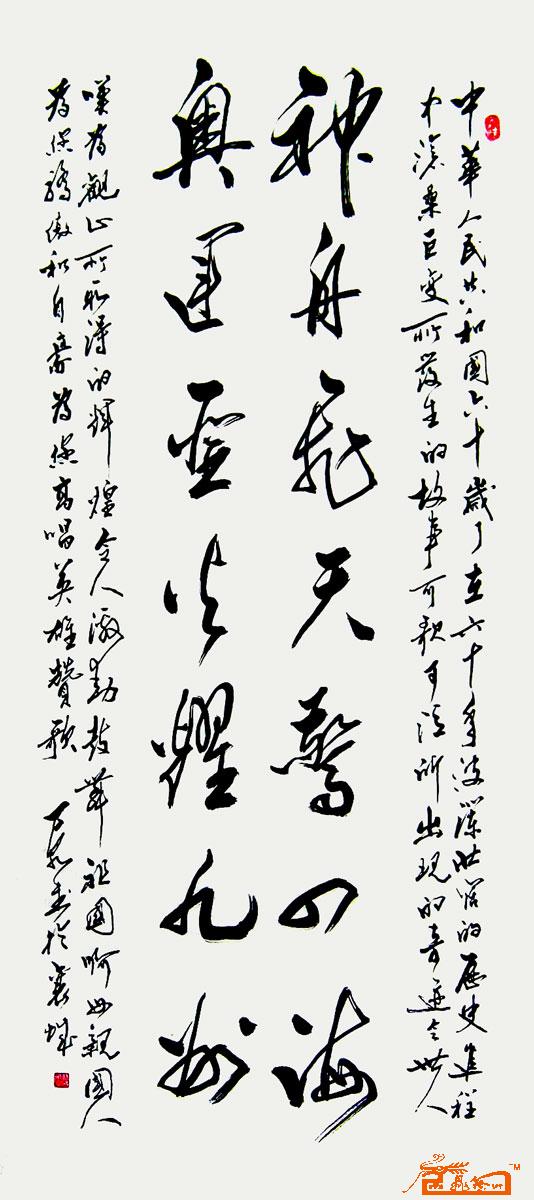 中華人民共和國六十歲了在六十年波瀾壯闊的歷史進程
中滄桑巨變所發生的故事可歌可泣所出現的奇迹令世人
神舟飛天驚四海
奧運聖火耀九州
嘆為觀止所取得的輝煌令人激動鼓舞祖國啊母親國人
為您驕傲和自豪為您高唱英雄贊歌 書於襄城